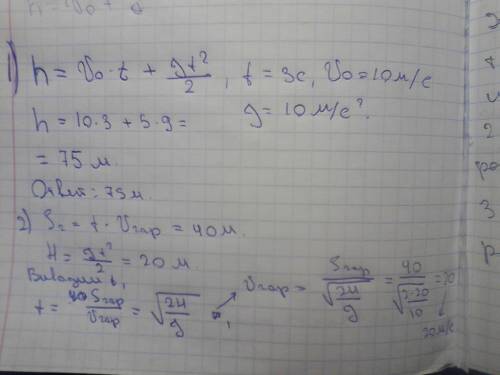 1) h = V₀·t + gt²/2, t = 3с, V₀ = 10 м/с
h = 10·3 + 5·9 = g = 10 м/с².
= 75 м.
Ответ: 75 м.
2) S₂ = t · Vгор = 40 м.
H = gt²/2 = 20 м.
t = Sгор/Vгор = √(2H/g) ↗ Vгор = Sгор/√(2H/g) = 40/√(2·20/10) = 20
20 м/с